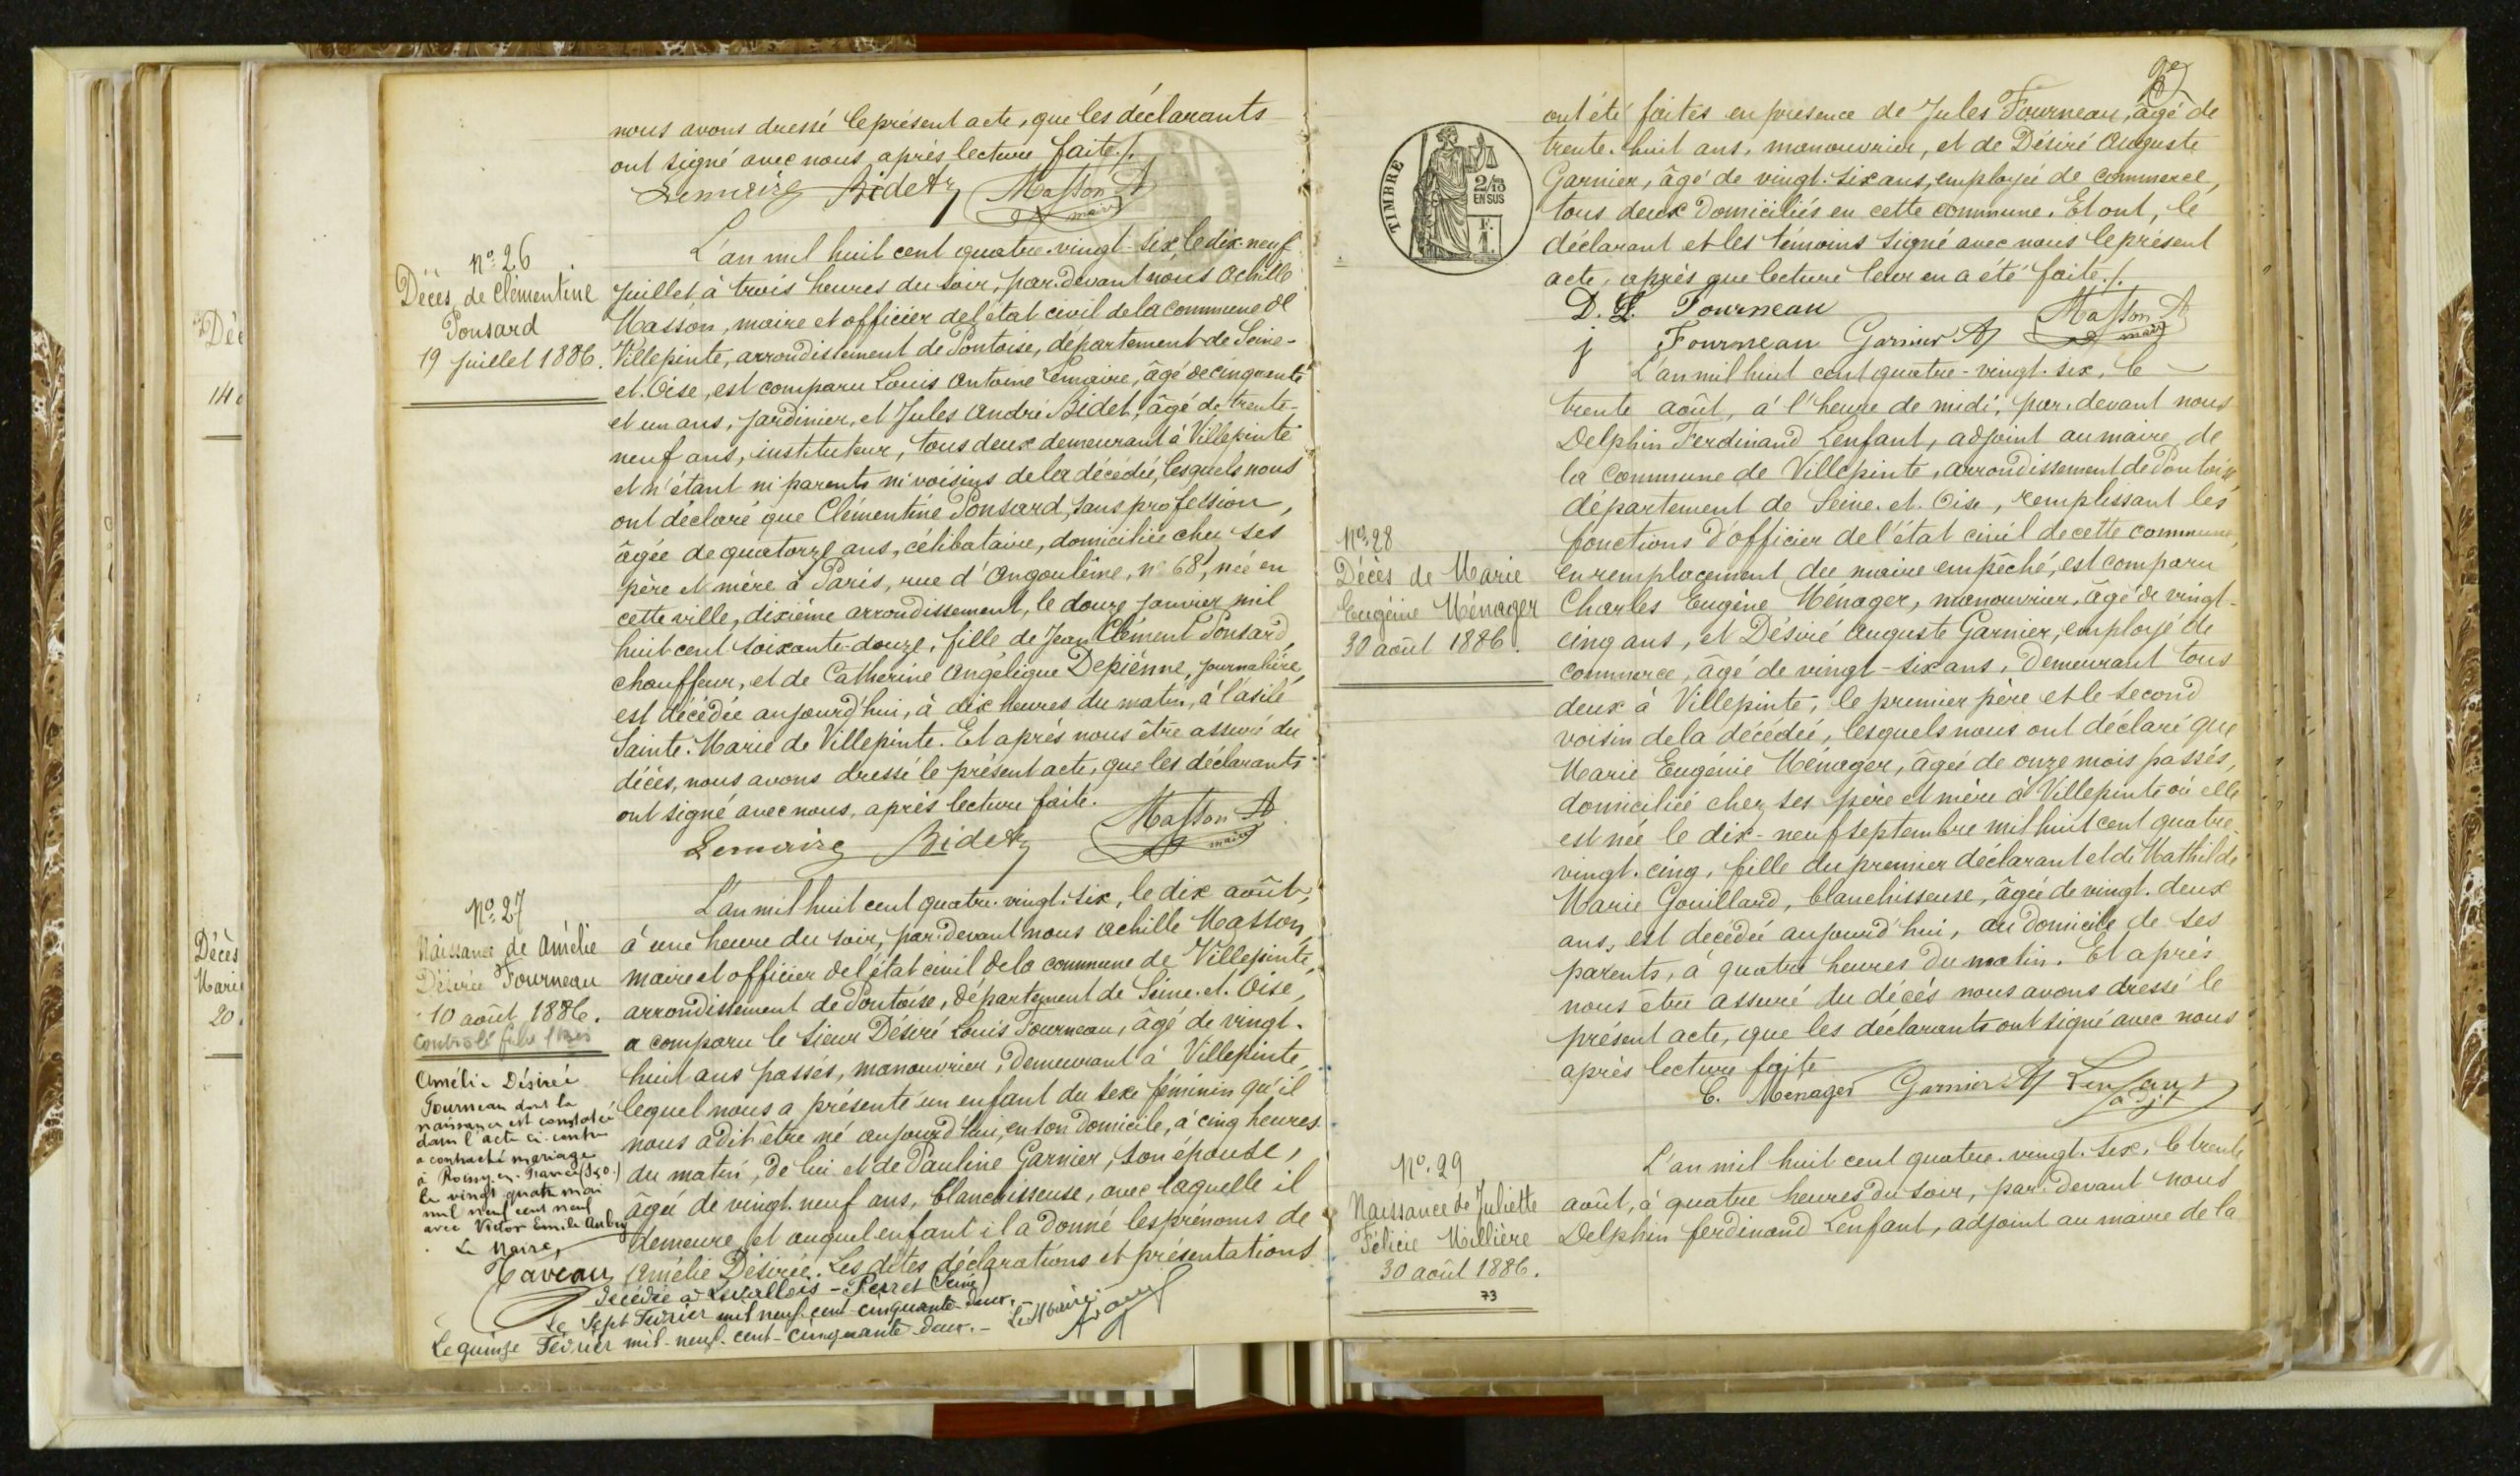 nous avons dressé le présent acte, que les déclarants
ont signé avec nous, après lecture faite./.
Lemaire Bidet Masson A
maire
Nº 26
Décès de Clémentine
Ponsard
19 juillet 1886.
L'an mil huit cent quatre-vingt-six, le dix-neuf
juillet à trois heures du soir, par-devant nous Achille
Masson, maire et officier de l'état civil de la commune de
Villepinte, arrondissement de Pontoise, département de Seine-
et-Oise, est comparu Louis Antoine Lemaire, âgé de cinquante
et un ans, jardinier, et Jules André Bidet, âgé de trente-
neuf ans, instituteur, tous deux demeurant à Villepinte
et n'étant ni parents ni voisins de la décédée, lesquels nous
ont déclaré que Clémentine Ponsard, sans profession,
âgée de quatorze ans, célibataire, domiciliée chez ses
père et mère à Paris, rue d'Angoulême, nº 68, née en
cette ville, dixième arrondissement, le douze janvier mil
huit cent soixante-douze, fille de Jean Clément Ponsard,
chauffeur, et de Catherine Angélique Depienne, journalière,
est décédée aujourd'hui, à dix heures du matin, à l'asile
Sainte-Marie de Villepinte. Et après nous être assuré du
décès, nous avons dressé le présent acte, que les déclarants
ont signé avec nous, après lecture faite.
Lemaire Bidet Masson A
maire
Nº 27
Naissance de Amélie
Désirée Fourneau
10 août 1886.
Contrôlé
L'an mil huit cent quatre-vingt-six, le dix août,
à une heure du soir, par-devant nous Achille Masson,
maire et officier de l'état civil de la commune de Villepinte,
arrondissement de Pontoise, département de Seine-et-Oise,
a comparu le sieur Désiré Louis Fourneau, âgé de vingt-
huit ans passés, manouvrier, demeurant à Villepinte,
lequel nous a présenté un enfant du sexe féminin qu'il
nous a dit être né aujourd'hui, en son domicile, à cinq heures
du matin, de lui et de Pauline Garnier, son épouse,
âgée de vingt-neuf ans, blanchisseuse, avec laquelle il
demeure, et auquel enfant il a donné les prénoms de
Amélie Désirée. Les dites déclarations et présentations
Amélie Désirée
Fourneau dont la
naissance est constatée
dans l'acte ci-contre
a contracté mariage
à Roissy-en-France (S&O.)
le vingt quatre mai
mil neuf cent neuf
avec Victor Emile Aubry
Le Maire,
Taveau
Décédée à Levallois-Perret (Seine)
Le Sept Février mil neuf cent cinquante-deux.-
Le quinze Février mil-neuf-cent-cinquante-deux.- Le Maire:
ont été faites en présence de Jules Fourneau, âgé de
trente-huit ans, manouvrier, et de Désiré Auguste
Garnier, âgé de vingt-six ans, employé de commerce,
tous deux domiciliés en cette commune. Et ont, le
déclarant et les témoins signé avec nous le présent
acte, après que lecture leur en a été faite./.
TIMBRE
2/10
EN SUS
F.
1.
D. L. Fourneau Masson A
maire
j Fourneau Garnier A
Nº 28
Décès de Marie
Eugénie Ménager
30 août 1886.
L'an mil huit cent quatre-vingt-six, le
trente août, à l'heure de midi, par-devant nous
Delphin Ferdinand Lenfant, adjoint au maire de
la commune de Villepinte, arrondissement de Pontoise,
département de Seine-et-Oise, remplissant les
fonctions d'officier de l'état civil de cette commune,
en remplacement du maire empêché, est comparu
Charles Eugène Ménager, manouvrier, âgé de vingt-
cinq ans, et Désiré Auguste Garnier, employé de
commerce, âgé de vingt-six ans, demeurant tous
deux à Villepinte, le premier père et le second
voisin de la décédée, lesquels nous ont déclaré que
Marie Eugénie Ménager, âgée de onze mois passés,
domiciliée chez ses père et mère à Villepinte où elle
est née le dix-neuf septembre mil huit cent quatre-
vingt-cinq, fille du premier déclarant et de Mathilde
Marie Gouillard, blanchisseuse, âgée de vingt-deux
ans, est décédée aujourd'hui, au domicile de ses
parents, à quatre heures du matin. Et après
nous être assuré du décès nous avons dressé le
présent acte, que les déclarants ont signé avec nous
après lecture faite
C. Ménager Garnier A Lenfant
adjt
Nº 29
Naissance de Juliette
Félicie Millière
30 août 1886.
73
L'an mil huit cent quatre-vingt-six, le trente
août, à quatre heures du soir, par-devant nous
Delphin ferdinand Lenfant, adjoint au maire de la
Décès
Marie
20